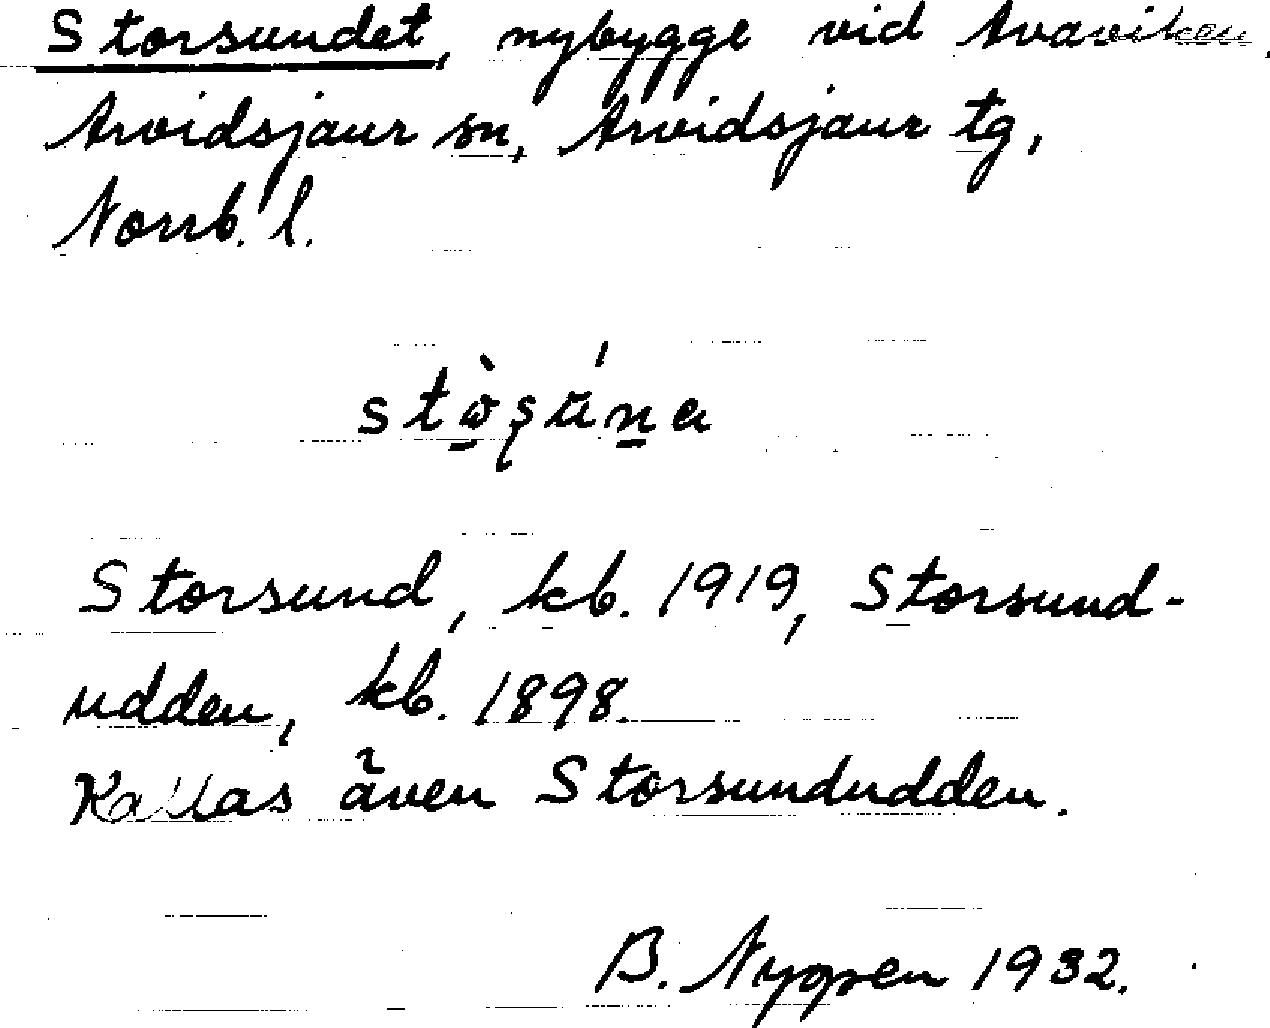 Storsundet, nybygge vid Avaviken,
Arvidsjaur sn, Arvidsjaur tg,
Norrb. l.
Storsund, kb. 1919, Storsund-
udden, kb. 1898.
Kallas även Storsundudden.
B. Nyopen 1932.